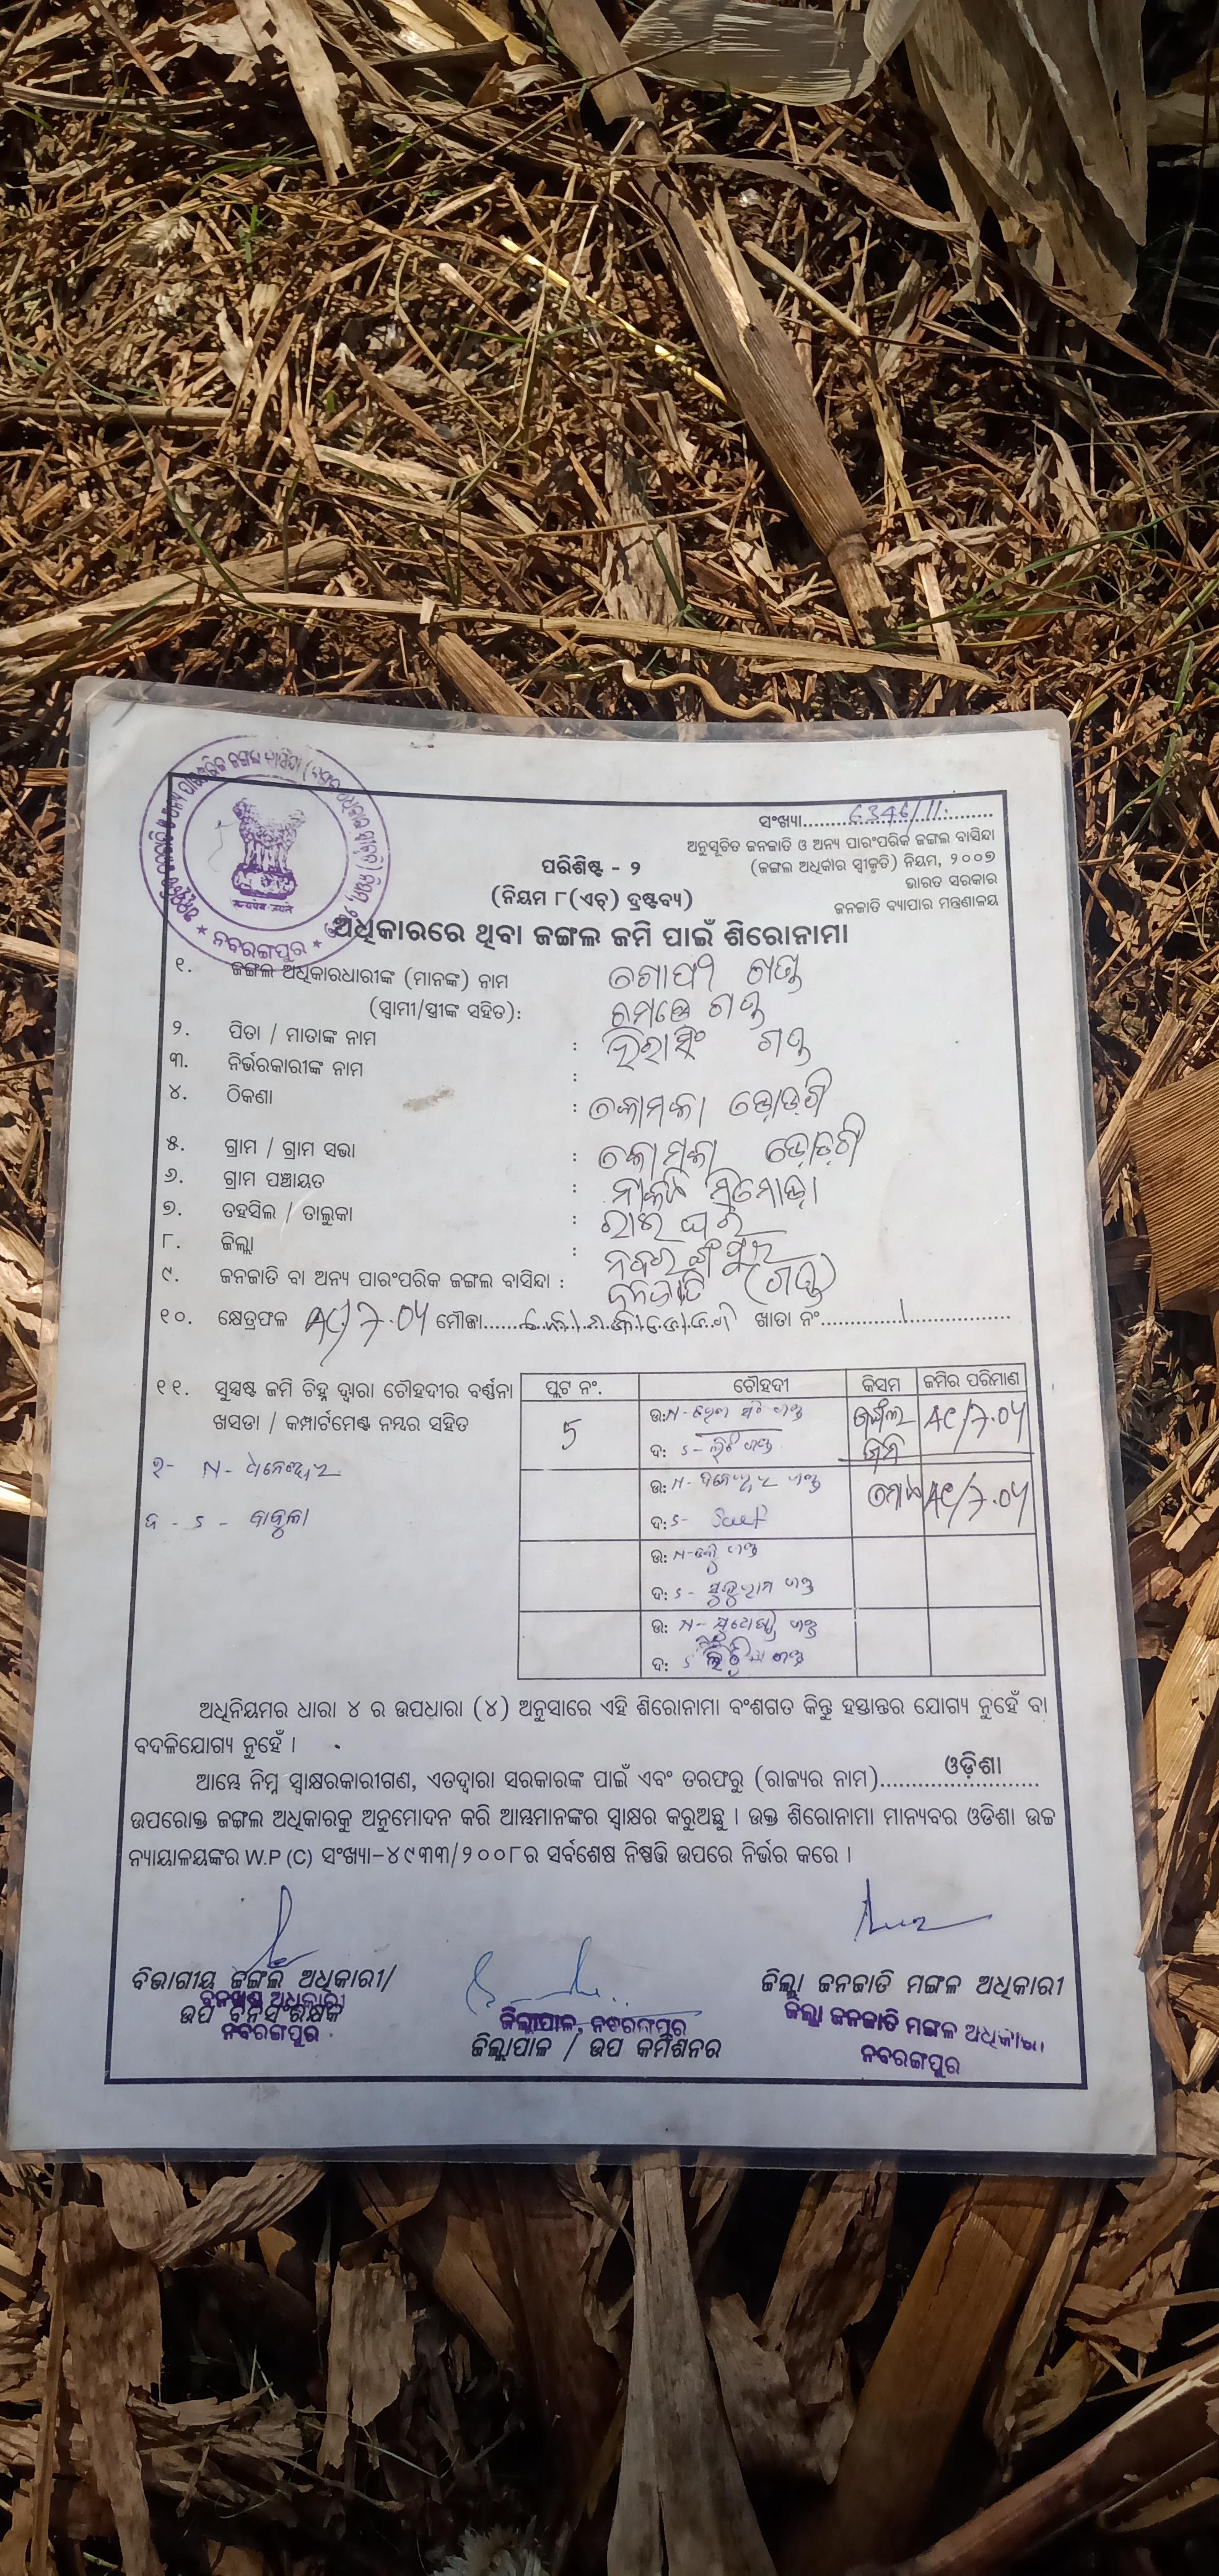 ସଂଖ୍ୟା........6346/11........
ଅନୁସୂଚିତ ଜନଜାତି ଓ ଅନ୍ୟ ପାରଂପରିକ ଜଙ୍ଗଲ ବାସିନ୍ଦା
(ଜଙ୍ଗଲ ଅଧିକାର ସ୍ୱୀକୃତି) ନିୟମ, ୨୦୦୭
ଭାରତ ସରକାର
ଜନଜାତି ବ୍ୟାପାର ମନ୍ତ୍ରଣାଳୟ
ପରିଶିଷ୍ଟ - ୨
(ନିୟମ ୮(ଏଚ୍) ଦ୍ରଷ୍ଟବ୍ୟ)
ନବରଙ୍ଗପୁର
ଅଧିକାରରେ ଥିବା ଜଙ୍ଗଲ ଜମି ପାଇଁ ଶିରୋନାମା
୧. ଜଙ୍ଗଲ ଅଧିକାରଧାରୀଙ୍କ (ମାନଙ୍କ) ନାମ ଗୋପୀ ଗଣ୍ଡ
(ସ୍ୱାମୀ/ସ୍ତ୍ରୀଙ୍କ ସହିତ): ଗଣ୍ଡ
୨. ପିତା / ମାତାଙ୍କ ନାମ : ହିରାସିଂ ଗଣ୍ଡ
୩. ନିର୍ଭରକାରୀଙ୍କ ନାମ :
୪. ଠିକଣା :
୫. ଗ୍ରାମ / ଗ୍ରାମ ସଭା :
୬. ଗ୍ରାମ ପଞ୍ଚାୟତ :
୭. ତହସିଲ / ତାଲୁକା : ରାଇଘର
୮. ଜିଲ୍ଲା : ନବରଙ୍ଗପୁର
୯. ଜନଜାତି ବା ଅନ୍ୟ ପାରଂପରିକ ଜଙ୍ଗଲ ବାସିନ୍ଦା : ଜନଜାତି (ଗଣ୍ଡ)
୧୦. କ୍ଷେତ୍ରଫଳ AC/7.04 ମୌଜା........ ଖାତା ନଂ........1........
୧୧. ସୁସ୍ପଷ୍ଟ ଜମି ଚିହ୍ନ ଦ୍ୱାରା ଚୌହଦୀର ବର୍ଣ୍ଣନା
ଖସଡା / କମ୍ପାର୍ଟମେଣ୍ଟ ନମ୍ବର ସହିତ
ପ୍ଲଟ ନଂ. ଚୌହଦୀ କିସମ ଜମିର ପରିମାଣ
5 ଉ: N- ଗଣ୍ଡ ଜଙ୍ଗଲ AC/7.04
ଦ: S- ଗଣ୍ଡ ଜମି
ଉ: N- ଗଣ୍ଡ ମୋଟ AC/7.04
ଦ: S-
ଉ: N- ଗଣ୍ଡ
ଦ: S- ଗଣ୍ଡ
ଉ: N- ଗଣ୍ଡ
ଦ: S ଗଣ୍ଡ
ଅଧିନିୟମର ଧାରା ୪ ର ଉପଧାରା (୪) ଅନୁସାରେ ଏହି ଶିରୋନାମା ବଂଶଗତ କିନ୍ତୁ ହସ୍ତାନ୍ତର ଯୋଗ୍ୟ ନୁହେଁ ବା
ବଦଳିଯୋଗ୍ୟ ନୁହେଁ ।
ଆମ୍ଭେ ନିମ୍ନ ସ୍ୱାକ୍ଷରକାରୀଗଣ, ଏତଦ୍ୱାରା ସରକାରଙ୍କ ପାଇଁ ଏବଂ ତରଫରୁ (ରାଜ୍ୟର ନାମ)........ଓଡ଼ିଶା........
ଉପରୋକ୍ତ ଜଙ୍ଗଲ ଅଧିକାରକୁ ଅନୁମୋଦନ କରି ଆମ୍ଭମାନଙ୍କର ସ୍ୱାକ୍ଷର କରୁଅଛୁ । ଉକ୍ତ ଶିରୋନାମା ମାନ୍ୟବର ଓଡିଶା ଉଚ୍ଚ
ନ୍ୟାୟାଳୟଙ୍କର W.P (C) ସଂଖ୍ୟା-୪୯୩୩/୨୦୦୮ର ସର୍ବଶେଷ ନିଷ୍ପତ୍ତି ଉପରେ ନିର୍ଭର କରେ ।
ବିଭାଗୀୟ ଜଙ୍ଗଲ ଅଧିକାରୀ/
ବନଖଣ୍ଡ ଅଧିକାରୀ
ଉପ ବନସଂରକ୍ଷକ
ନବରଙ୍ଗପୁର
ଜିଲ୍ଲାପାଳ, ନବରଙ୍ଗପୁର
ଜିଲ୍ଲାପାଳ / ଉପ କମିଶନର
ଜିଲ୍ଲା ଜନଜାତି ମଙ୍ଗଳ ଅଧିକାରୀ
ଜିଲ୍ଲା ଜନଜାତି ମଙ୍ଗଳ ଅଧିକାରୀ
ନବରଙ୍ଗପୁର